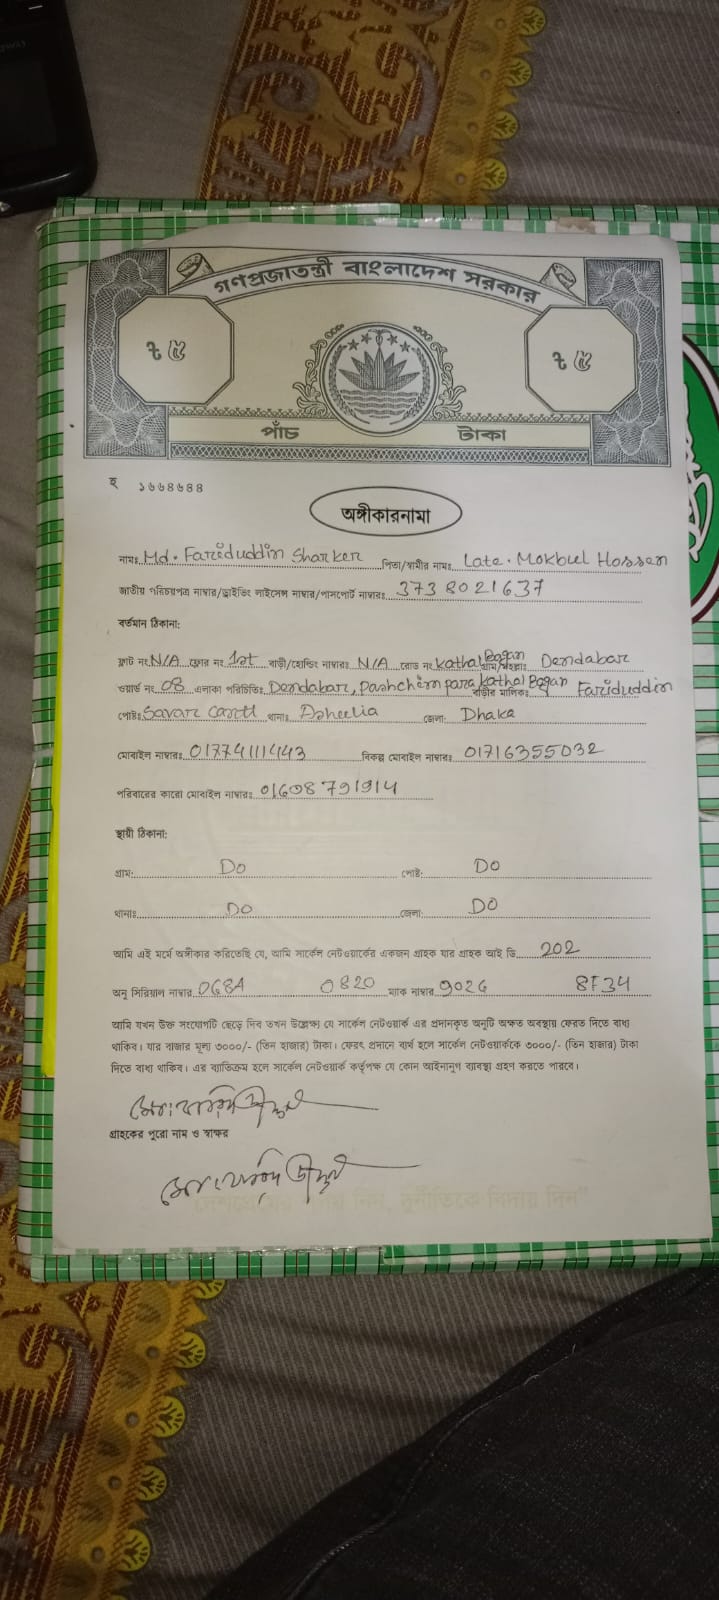 গণপ্রজাতন্ত্রী বাংলাদেশ সরকার
৳ ৫ ৳ ৫
পাঁচ টাকা
হ ১৬৬৪৬৪৪
অঙ্গীকারনামা
নামঃ Md. Fariduddin Sharker পিতা/স্বামীর নামঃ Late. Mokbul Hossen
জাতীয় পরিচয়পত্র নাম্বার/ড্রাইভিং লাইসেন্স নাম্বার/পাসপোর্ট নাম্বারঃ 3738021637
বর্তমান ঠিকানা:
ফ্লাট নং N/A ফ্লোর নং 1st বাড়ী/হোল্ডিং নাম্বারঃ N/A রোড নং Kathal Bagan গ্রাম/মহল্লাঃ Dendabar
ওয়ার্ড নং 08 এলাকা পরিচিতিঃ Dendabar, Pashchim para Kathal Bagan বাড়ীর মালিকঃ Fariduddin
পোষ্টঃ Savar Cantt থানাঃ Asheulia জেলা: Dhaka
মোবাইল নাম্বারঃ 01774111443 বিকল্প মোবাইল নাম্বারঃ 01716355032
পরিবারের কারো মোবাইল নাম্বারঃ 01608791914
স্থায়ী ঠিকানা:
গ্রাম: Do পোষ্ট: Do
থানাঃ Do জেলা: Do
আমি এই মর্মে অঙ্গীকার করিতেছি যে, আমি সার্কেল নেটওয়ার্কের একজন গ্রাহক যার গ্রাহক আই ডি 202
অনু সিরিয়াল নাম্বার 0820 ম্যাক নাম্বার 8F34
আমি যখন উক্ত সংযোগটি ছেড়ে দিব তখন উল্লেক্ষ্য যে সার্কেল নেটওয়ার্ক এর প্রদানকৃত অনুটি অক্ষত অবস্থায় ফেরত দিতে বাধ্য
থাকিব। যার বাজার মূল্য ৩০০০/- (তিন হাজার) টাকা। ফেরৎ প্রদানে ব্যর্থ হলে সার্কেল নেটওয়ার্ককে ৩০০০/- (তিন হাজার) টাকা
দিতে বাধ্য থাকিব। এর ব্যাতিক্রম হলে সার্কেল নেটওয়ার্ক কর্তৃপক্ষ যে কোন আইনানুগ ব্যাবস্থা গ্রহণ করতে পারবে।
গ্রাহকের পুরো নাম ও স্বাক্ষর